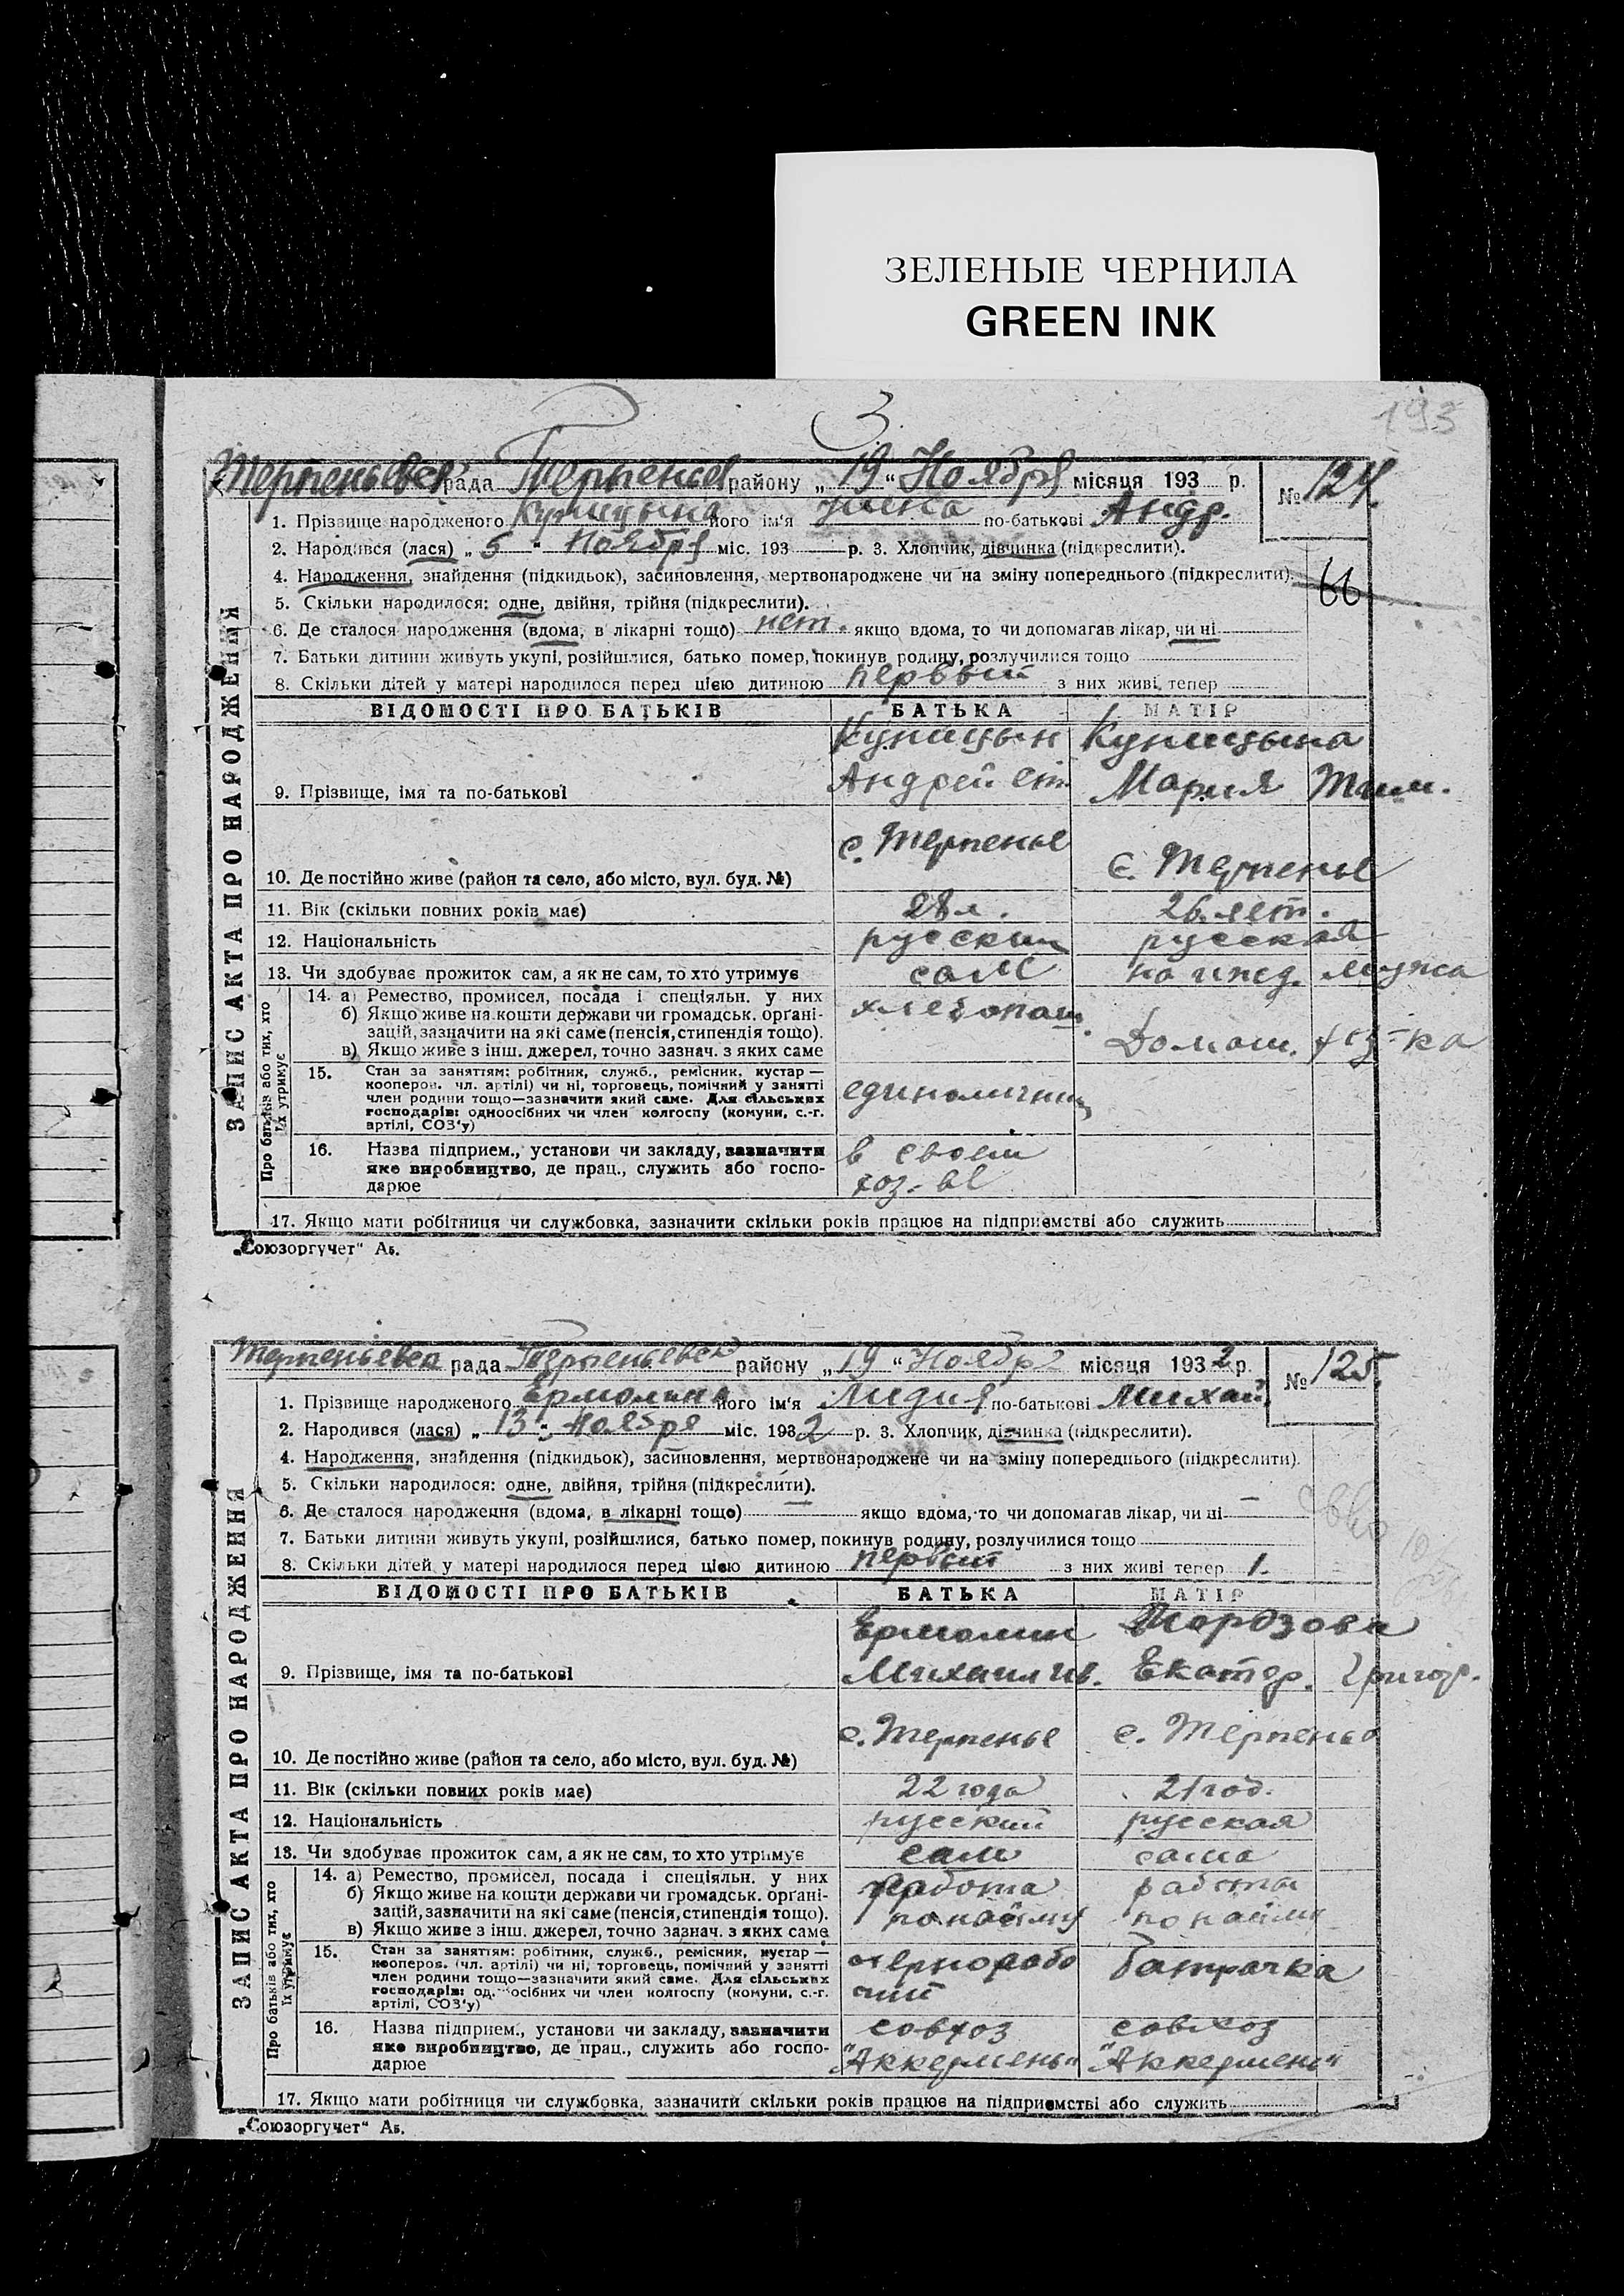 ЗЕЛЕНЫЕ ЧЕРНИЛА
GREEN INK
3.
193
Терпеньевск рада Терпеньев району „19“ Ноября місяця 193 р. № 124.
1. Прізвище народженого Куницына його ім'я по-батькові Андр.
2. Народився (лася) „5“ Ноября міс. 193 р. 3. Хлопчик, дівчинка (підкреслити).
4. Народження, знайдення (підкидьок), засиновлення, мертвонароджене чи на зміну попереднього (підкреслити).
66
5. Скільки народилося: одне, двійня, трійня (підкреслити).
6. Де сталося народження (вдома, в лікарні тощо) нет. якщо вдома, то чи допомагав лікар, чи ні
7. Батьки дитини живуть укупі, розійшлися, батько помер, покинув родину, розлучилися тощо
8. Скільки дітей у матері народилося перед цією дитиною первый з них живі тепер
ЗАПИС АКТА ПРО НАРОДЖЕННЯ
ВІДОМОСТІ ПРО БАТЬКІВ БАТЬКА МАТІР
Куницын Куницына
9. Прізвище, імя та по-батькові Андрей Мария Тим.
10. Де постійно живе (район та село, або місто, вул. буд. №) с. Терпенье с. Терпенье
11. Вік (скільки повних років має) 28 л. 26 лет.
12. Національність русский русская
13. Чи здобуває прожиток сам, а як не сам, то хто утримує сам на ижд. мужа
Про батьків або тих, хто їх утримує
14. а) Ремество, промисел, посада і спеціяльн. у них хлебопаш. Домаш. хоз-ка
б) Якщо живе на кошти держави чи громадськ. органі-
зацій, зазначити на які саме (пенсія, стипендія тощо).
в) Якщо живе з інш. джерел, точно зазнач. з яких саме
15. Стан за заняттям: робітник, служб., ремісник, кустар —
кооперов. чл. артілі) чи ні, торговець, помічний у занятті
член родини тощо—зазначити який саме. Для сільських единоличник
господарів: одноосібних чи член колгоспу (комуни, с.-г.
артілі, СОЗ'у)
16. Назва підприєм., установи чи закладу, зазначити в своем
яке виробництво, де прац., служить або госпо- хоз-ве
дарює
17. Якщо мати робітниця чи службовка, зазначити скільки років працює на підприємстві або служить
„Союзоргучет“ Аб.
Терпеньевск рада Терпеньевск району „19“ Ноября місяця 1932 р. № 125.
1. Прізвище народженого Ермолина його ім'я Лидия по-батькові Михай.
2. Народився (лася) „13“ Ноября міс. 1932 р. 3. Хлопчик, дівчинка (підкреслити).
4. Народження, знайдення (підкидьок), засиновлення, мертвонароджене чи на зміну попереднього (підкреслити).
5. Скільки народилося: одне, двійня, трійня (підкреслити).
6. Де сталося народження (вдома, в лікарні тощо) — якщо вдома, то чи допомагав лікар, чи ні —
7. Батьки дитини живуть укупі, розійшлися, батько помер, покинув родину, розлучилися тощо
8. Скільки дітей у матері народилося перед цією дитиною первый з них живі тепер 1.
ЗАПИС АКТА ПРО НАРОДЖЕННЯ
ВІДОМОСТІ ПРО БАТЬКІВ БАТЬКА МАТІР
Ермолин Морозова
9. Прізвище, імя та по-батькові Михаил Ив. Екатер. Григор.
10. Де постійно живе (район та село, або місто, вул. буд. №) с. Терпенье с. Терпенье
11. Вік (скільки повних років має) 22 года 21 год.
12. Національність русский русская
13. Чи здобуває прожиток сам, а як не сам, то хто утримує сам сама
Про батьків або тих, хто їх утримує
14. а) Ремество, промисел, посада і спеціяльн. у них работа работа
б) Якщо живе на кошти держави чи громадськ. органі-
зацій, зазначити на які саме (пенсія, стипендія тощо). по найму по найму
в) Якщо живе з інш. джерел, точно зазнач. з яких саме
15. Стан за заняттям: робітник, служб., ремісник, кустар —
кооперов. (чл. артілі) чи ні, торговець, помічний у занятті чернорабо батрачка
член родини тощо—зазначити який саме. Для сільських
господарів: одноосібних чи член колгоспу (комуни, с.-г. чий
артілі, СОЗ'у)
16. Назва підприєм., установи чи закладу, зазначити совхоз совхоз
яке виробництво, де прац., служить або госпо- "Аккермень" "Аккермень"
дарює
17. Якщо мати робітниця чи службовка, зазначити скільки років працює на підприємстві або служить
„Союзоргучет“ Аб.